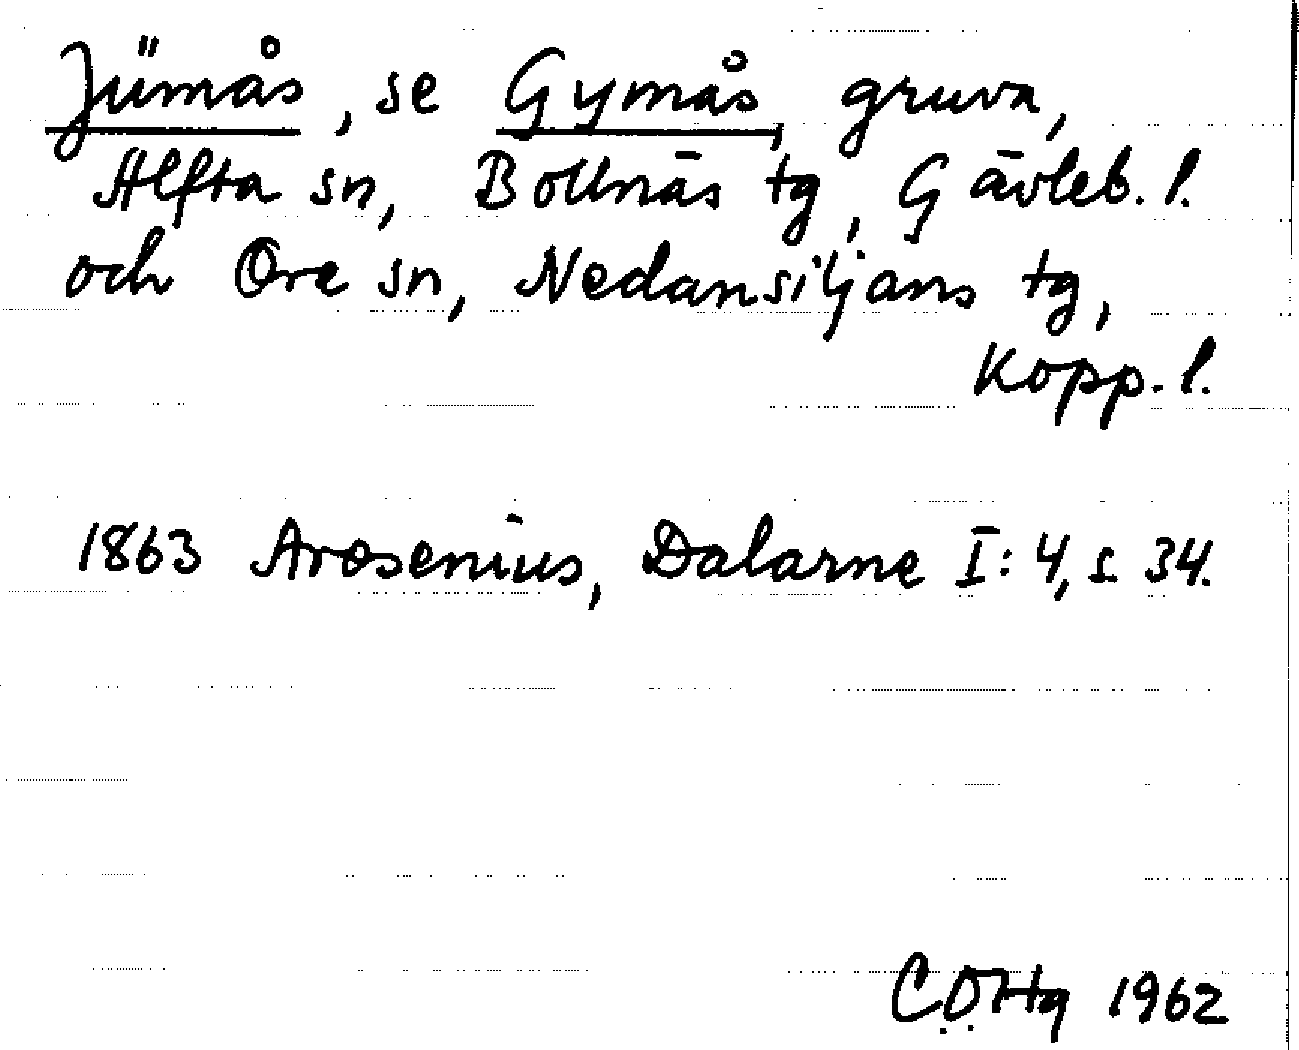 Jümås, se Gymås, gruva,
Alfta sn, Bollnäs tg, Gävleb. l.
och Ore sn, Nedansiljans tg,
Kopp. l.
1863 Arosenius, Dalarne I:4, s. 34.
1962